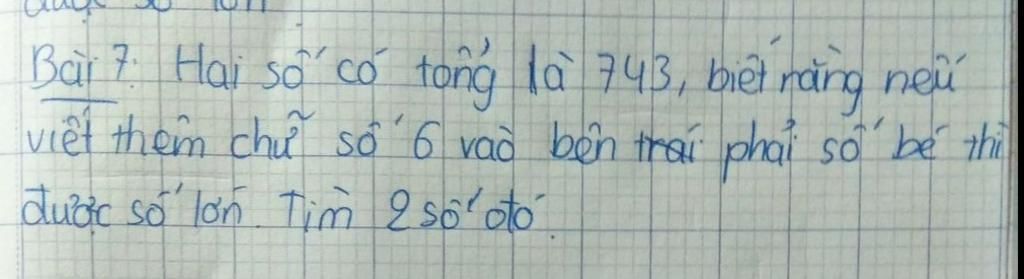 Bài 7. Hai số có tổng là 743, biết rằng nếu
viết thêm chữ số 6 vào bên trái phải số bé thì
được số lớn. Tìm 2 số đó.